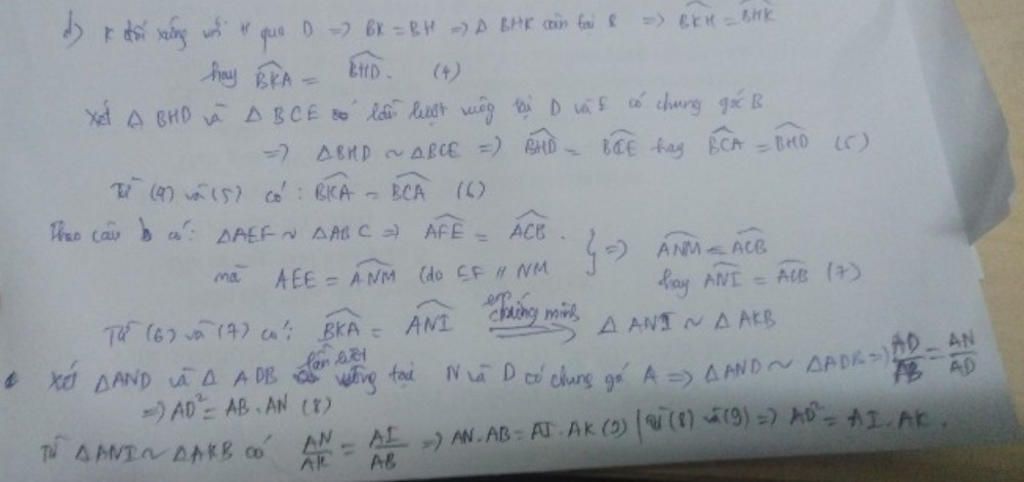 d) K đối xứng với H qua D => BK = BH => Δ BHK cân tại B => \widehat{BKH} = \widehat{BHK}
hay \widehat{BKA} = \widehat{BHD}. (4)
Xét Δ BHD và Δ BCE có lần lượt vuông tại D và E có chung góc B
=> ΔBHD ~ ΔBCE => \widehat{BHD} = \widehat{BCE} hay \widehat{BCA} = \widehat{BHD} (5)
Từ (4) và (5) có: \widehat{BKA} = \widehat{BCA} (6)
Theo câu b có: ΔAEF ~ ΔABC => \widehat{AFE} = \widehat{ACB}. } => \widehat{ANM} = \widehat{ACB}
mà AEE = \widehat{ANM} (do EF // NM hay \widehat{ANI} = \widehat{ACB} (7)
Từ (6) và (7) có: \widehat{BKA} = \widehat{ANI} chứng minh => Δ ANI ~ Δ AKB
Xét ΔAND và Δ ADB lần lượt vuông tại N và D có chung góc A => ΔAND ~ ΔADB => \frac{AD}{AB} = \frac{AN}{AD}
=> AD² = AB . AN (8)
Từ ΔANI ~ ΔAKB có \frac{AN}{AK} = \frac{AI}{AB} => AN . AB = AI . AK (9) | Từ (8) và (9) => AD² = AI . AK .